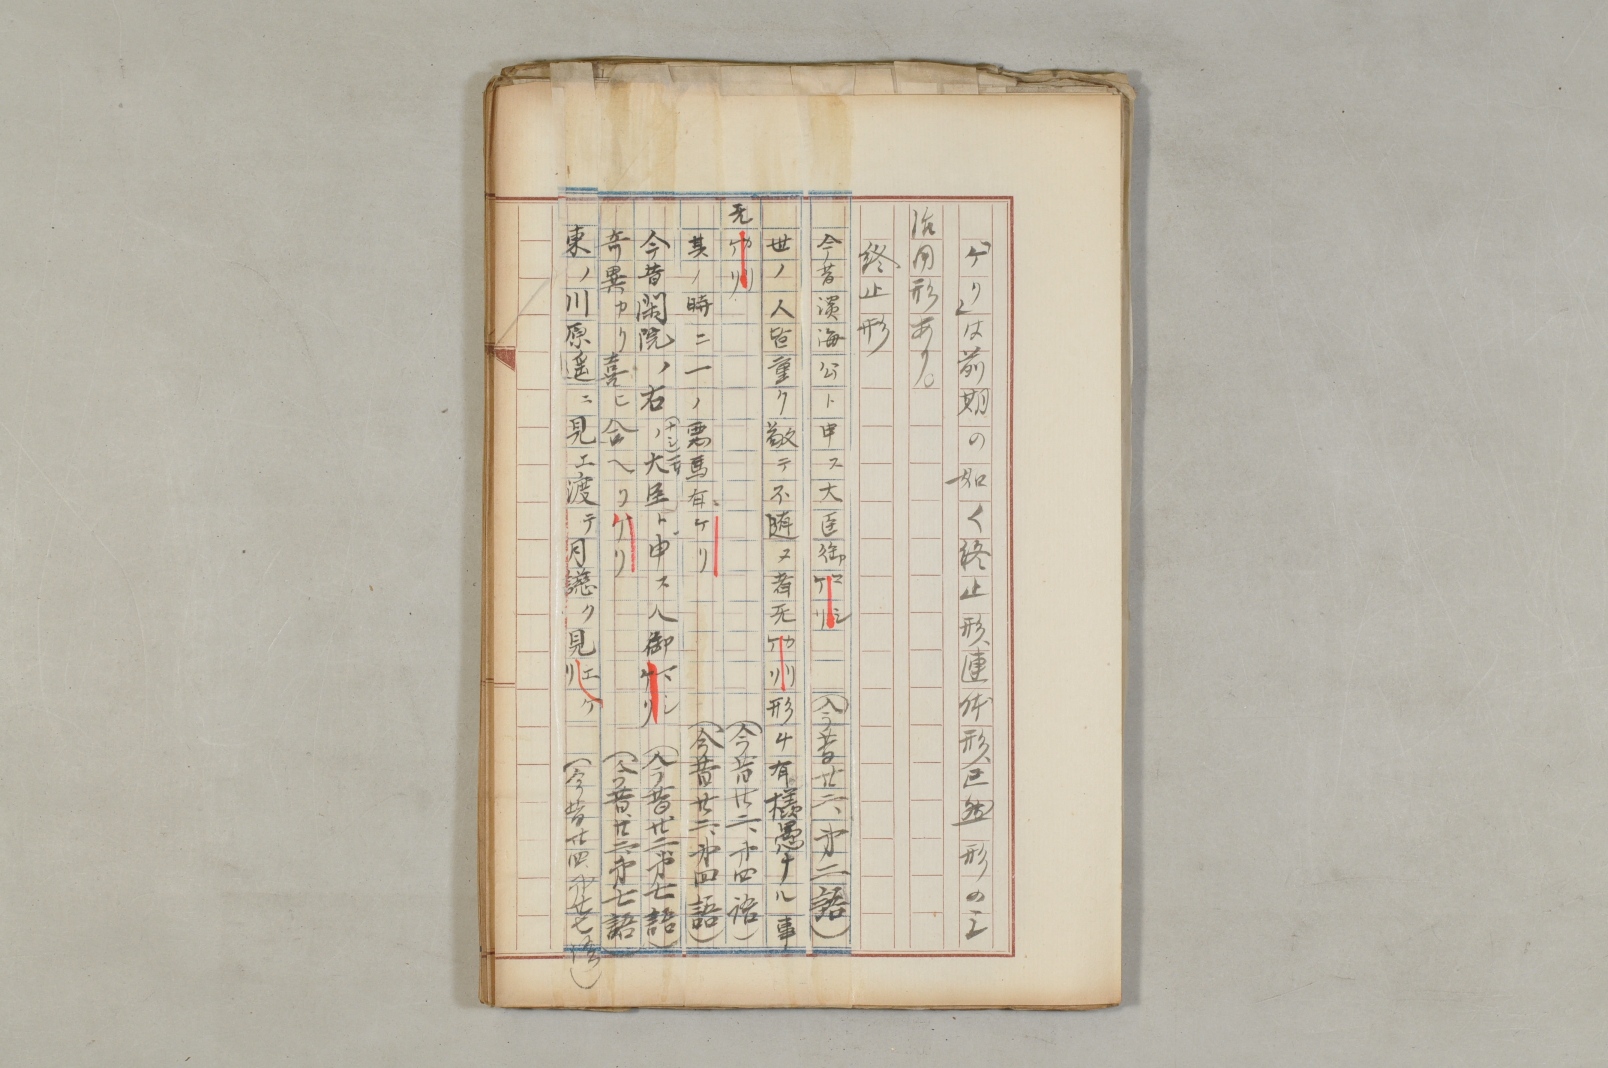 「ケリ」は前期の如く終止形、連体形、已然形の三
活用形あり。
終止形
今昔淡海公ト申ス大臣御マシケリ （今昔廿二、第二語）
世ノ人皆重ク敬テ不随ヌ者无カリケリ 形ヶ有様愚ナル事
无カリケリ （今昔廿二、第四語）
其ノ時ニ一ノ悪馬有ケリ （今昔廿二、第四語）
今昔閑院ノ右ノ大臣ト申ス人御マシケリ （今昔廿二、第七語）
奇異カリ喜ビ合ヘリケリ （今昔廿二、第七語）
東ノ川原遥ニ見エ渡テ月 ク見エケリ （今昔廿四、第廿七語）